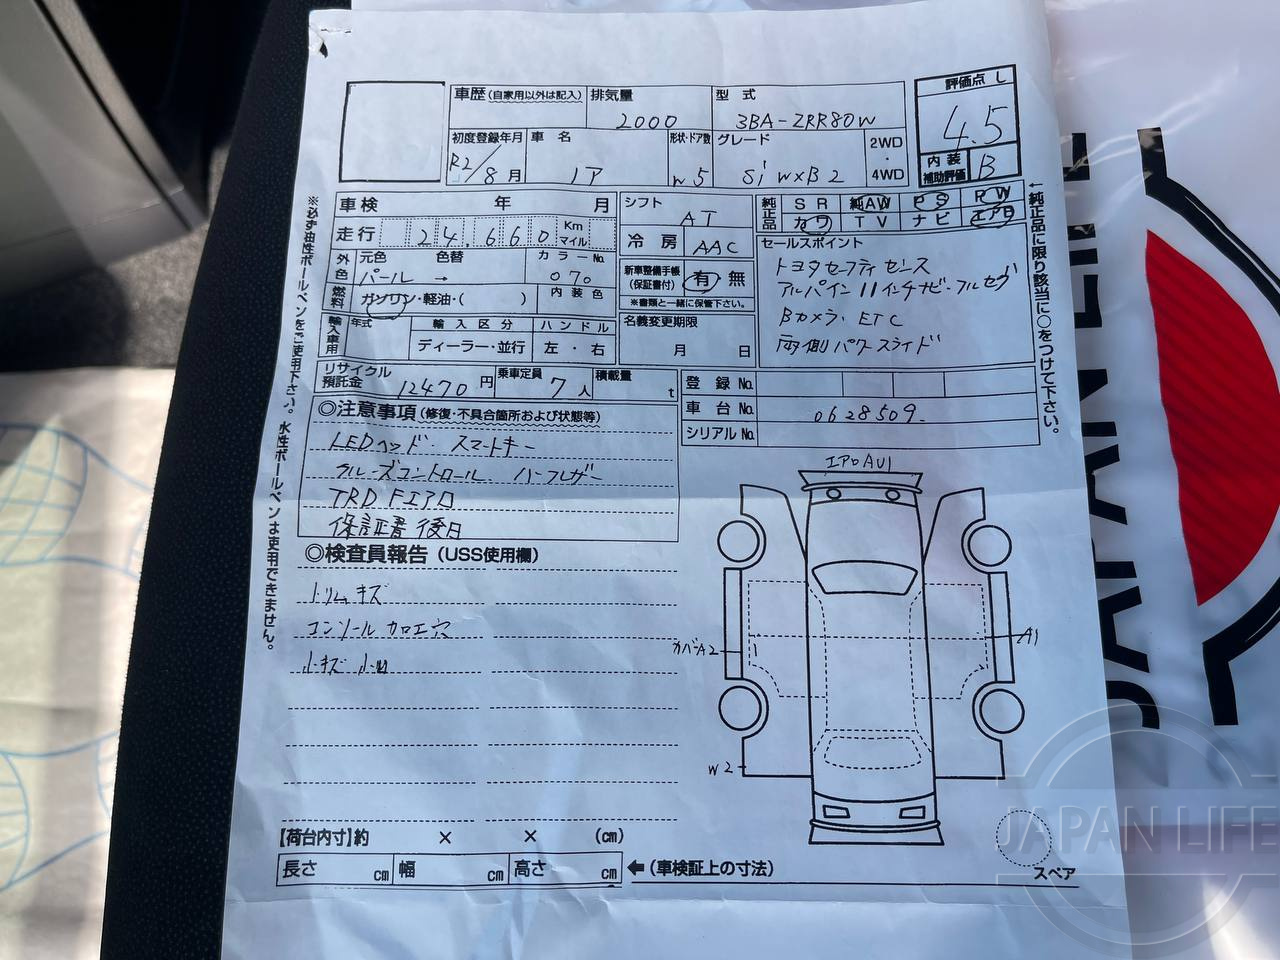 車歴(自家用以外は記入) 排気量 型式 評価点 L
2000 3BA-ZRR80W 4.5
初度登録年月 車名 形状・ドア数 グレード 2WD・4WD 内装補助評価 B
R2/8月 ノア W5 Si W×B2
車検 年 月 シフト AT 純正品 SR 純AW PS PW
カワ TV ナビ エアB
走行 24,660 Km マイル 冷房 AAC セールスポイント
外色 元色 色替 カラーNo. 新車整備手帳(保証書付) 有 無
パール → 070 ※書類と一緒に保管下さい。
燃料 ガソリン・軽油・( ) 内装色
トヨタセーフティセンス
アルパイン11インチナビ・フルセグ
Bカメラ・ETC
両側パワースライド
輸入車用 年式 輸入区分 ハンドル 名義変更期限
ディーラー・並行 左・右 月 日
リサイクル預託金 12470円 乗車定員 7人 積載量 t
登録No.
車台No. 0628509
シリアルNo.
◎注意事項(修復・不具合箇所および状態等)
LEDヘッド スマートキー
クルーズコントロール ハーフレザー
TRD Fエアロ
保証書後日
◎検査員報告(USS使用欄)
トリムキズ
コンソール加工穴
小キズ 小凹
エアロAU1
カバーA2
A1
W2
【荷台内寸】約 × × (cm)
長さ cm 幅 cm 高さ cm ←(車検証上の寸法)
スペア
※必ず油性ボールペンをご使用下さい。水性ボールペンは使用できません。
←純正品に限り該当に○をつけて下さい。
JAPAN LIFE
JAPAN LIFE